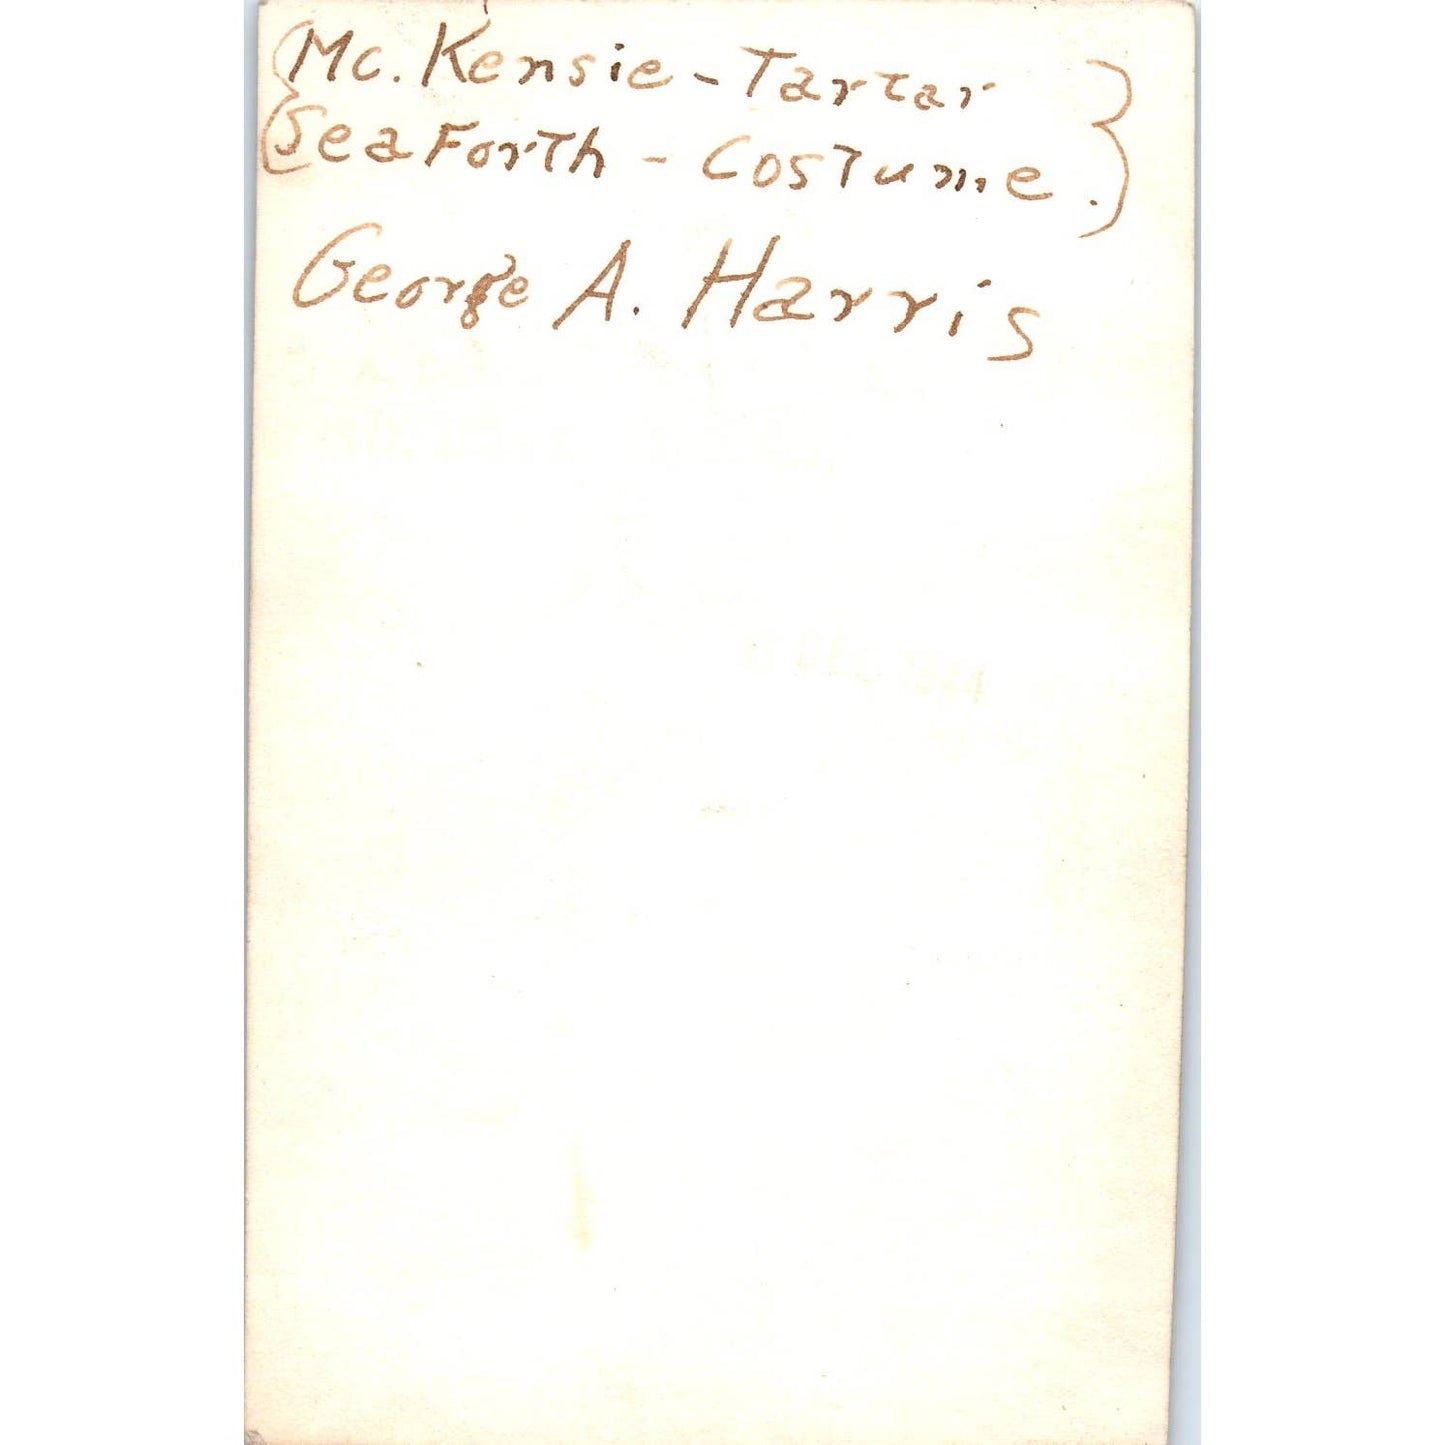 {Mc. Kensie - Tartar }
{SeaForth - Costume. }
George A. Harris